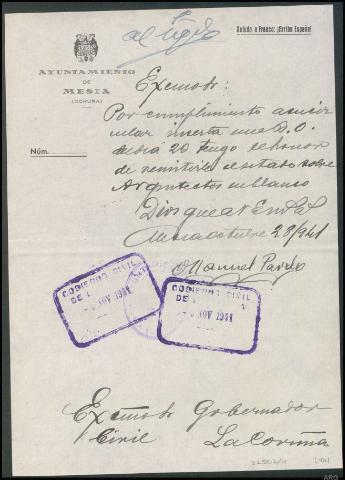 al Legdo
Saludo a Franco: ¡Arriba España!
AYUNTAMIENTO
DE
MESIA
(CORUÑA)
Núm.
Excmo Sr:
Por cumplimiento a circu
lar inserta en el B.O.
del dia 20 tengo el honor
de remitirle el estado sobre
Arquitectos en blanco
Dios gue a V E m
Mesia octubre 28/941
Manuel Pardo
GOBIERNO CIVIL
DE L
NOV 1941
GOBIERNO CIVIL
DE L
NOV 1941
Excmo Sr Gobernador
Civil La Coruña